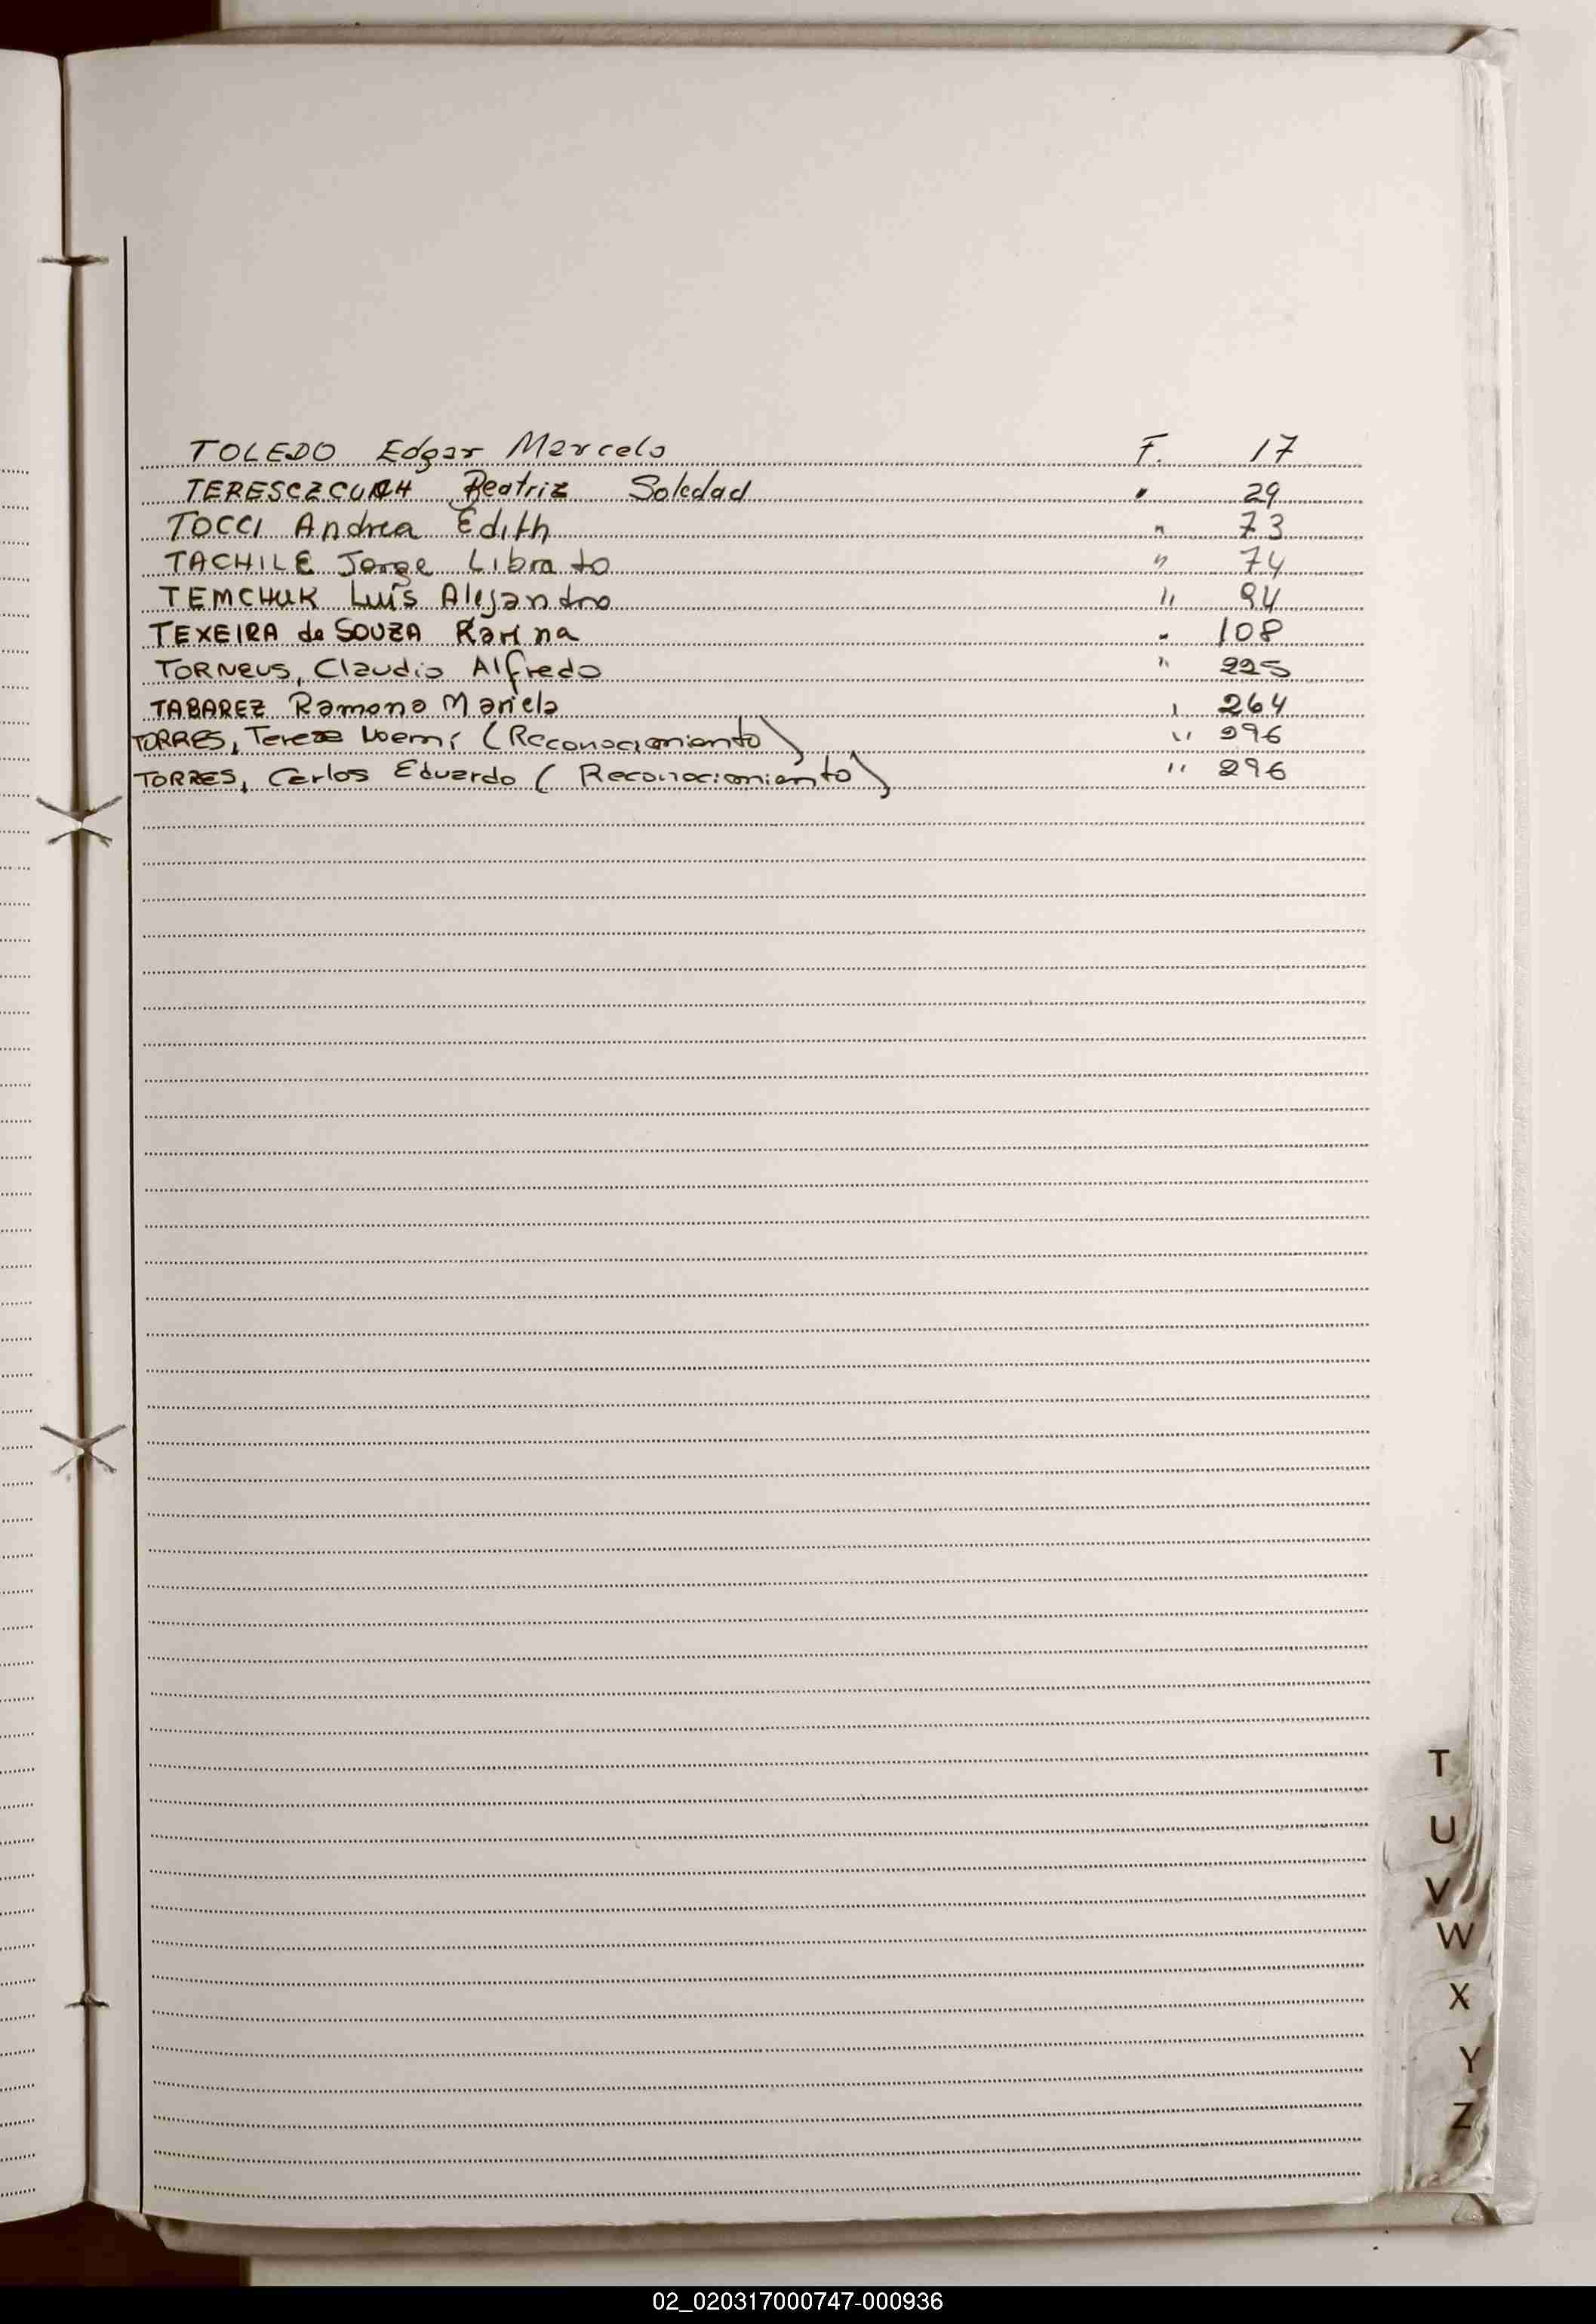 TOLEDO Edgar Marcelo F. 17
Beatriz Soledad " 29
TOCCI Andrea Edith " 73
TACHILE Jorge Librato " 74
TEMCHUK Luís Alejandro " 94
TEXEIRA de SOUZA Karina " 108
TORNEUS, Claudio Alfredo " 225
TABAREZ Ramona Mariela " 264
TORRES, Tereza Noemí (Reconocimiento) " 296
TORRES, Carlos Eduardo (Reconocimiento) " 296
T
U
V
W
X
Y
Z
02_020317000747-000936